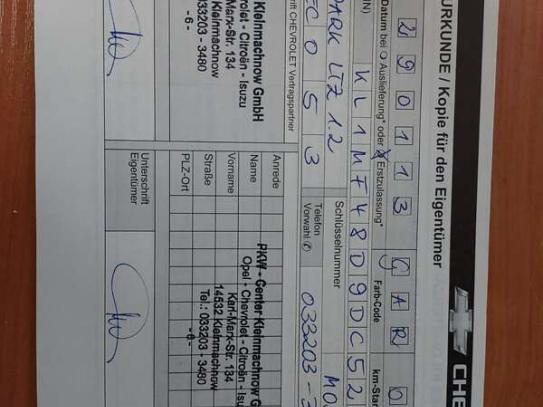 URKUNDE / Kopie für den Eigentümer
CHE
Datum bei O Auslieferung* oder Erstzulassung*
Farb-Code
km-Star
290113
GAR
0
KL1MF48D9DC52
Schlüsselnummer
PARK LTZ 1.2
Telefon
Vorwahl
033203-3
C053
rift CHEVROLET Vertragspartner
Kleinmachnow GmbH
vrolet - Citroën - Isuzu
Marx-Str. 134
Kleinmachnow
033203 - 3480
-6-
Anrede
Name
Vorname
Straße
PLZ-Ort
PKW - Center Kleinmachnow G
Opel - Chevrolet - Citroën - Isu
Karl-Marx-Str. 134
14532 Kleinmachnow
Tel.: 033203 - 3480
-6-
Unterschrift
Eigentümer